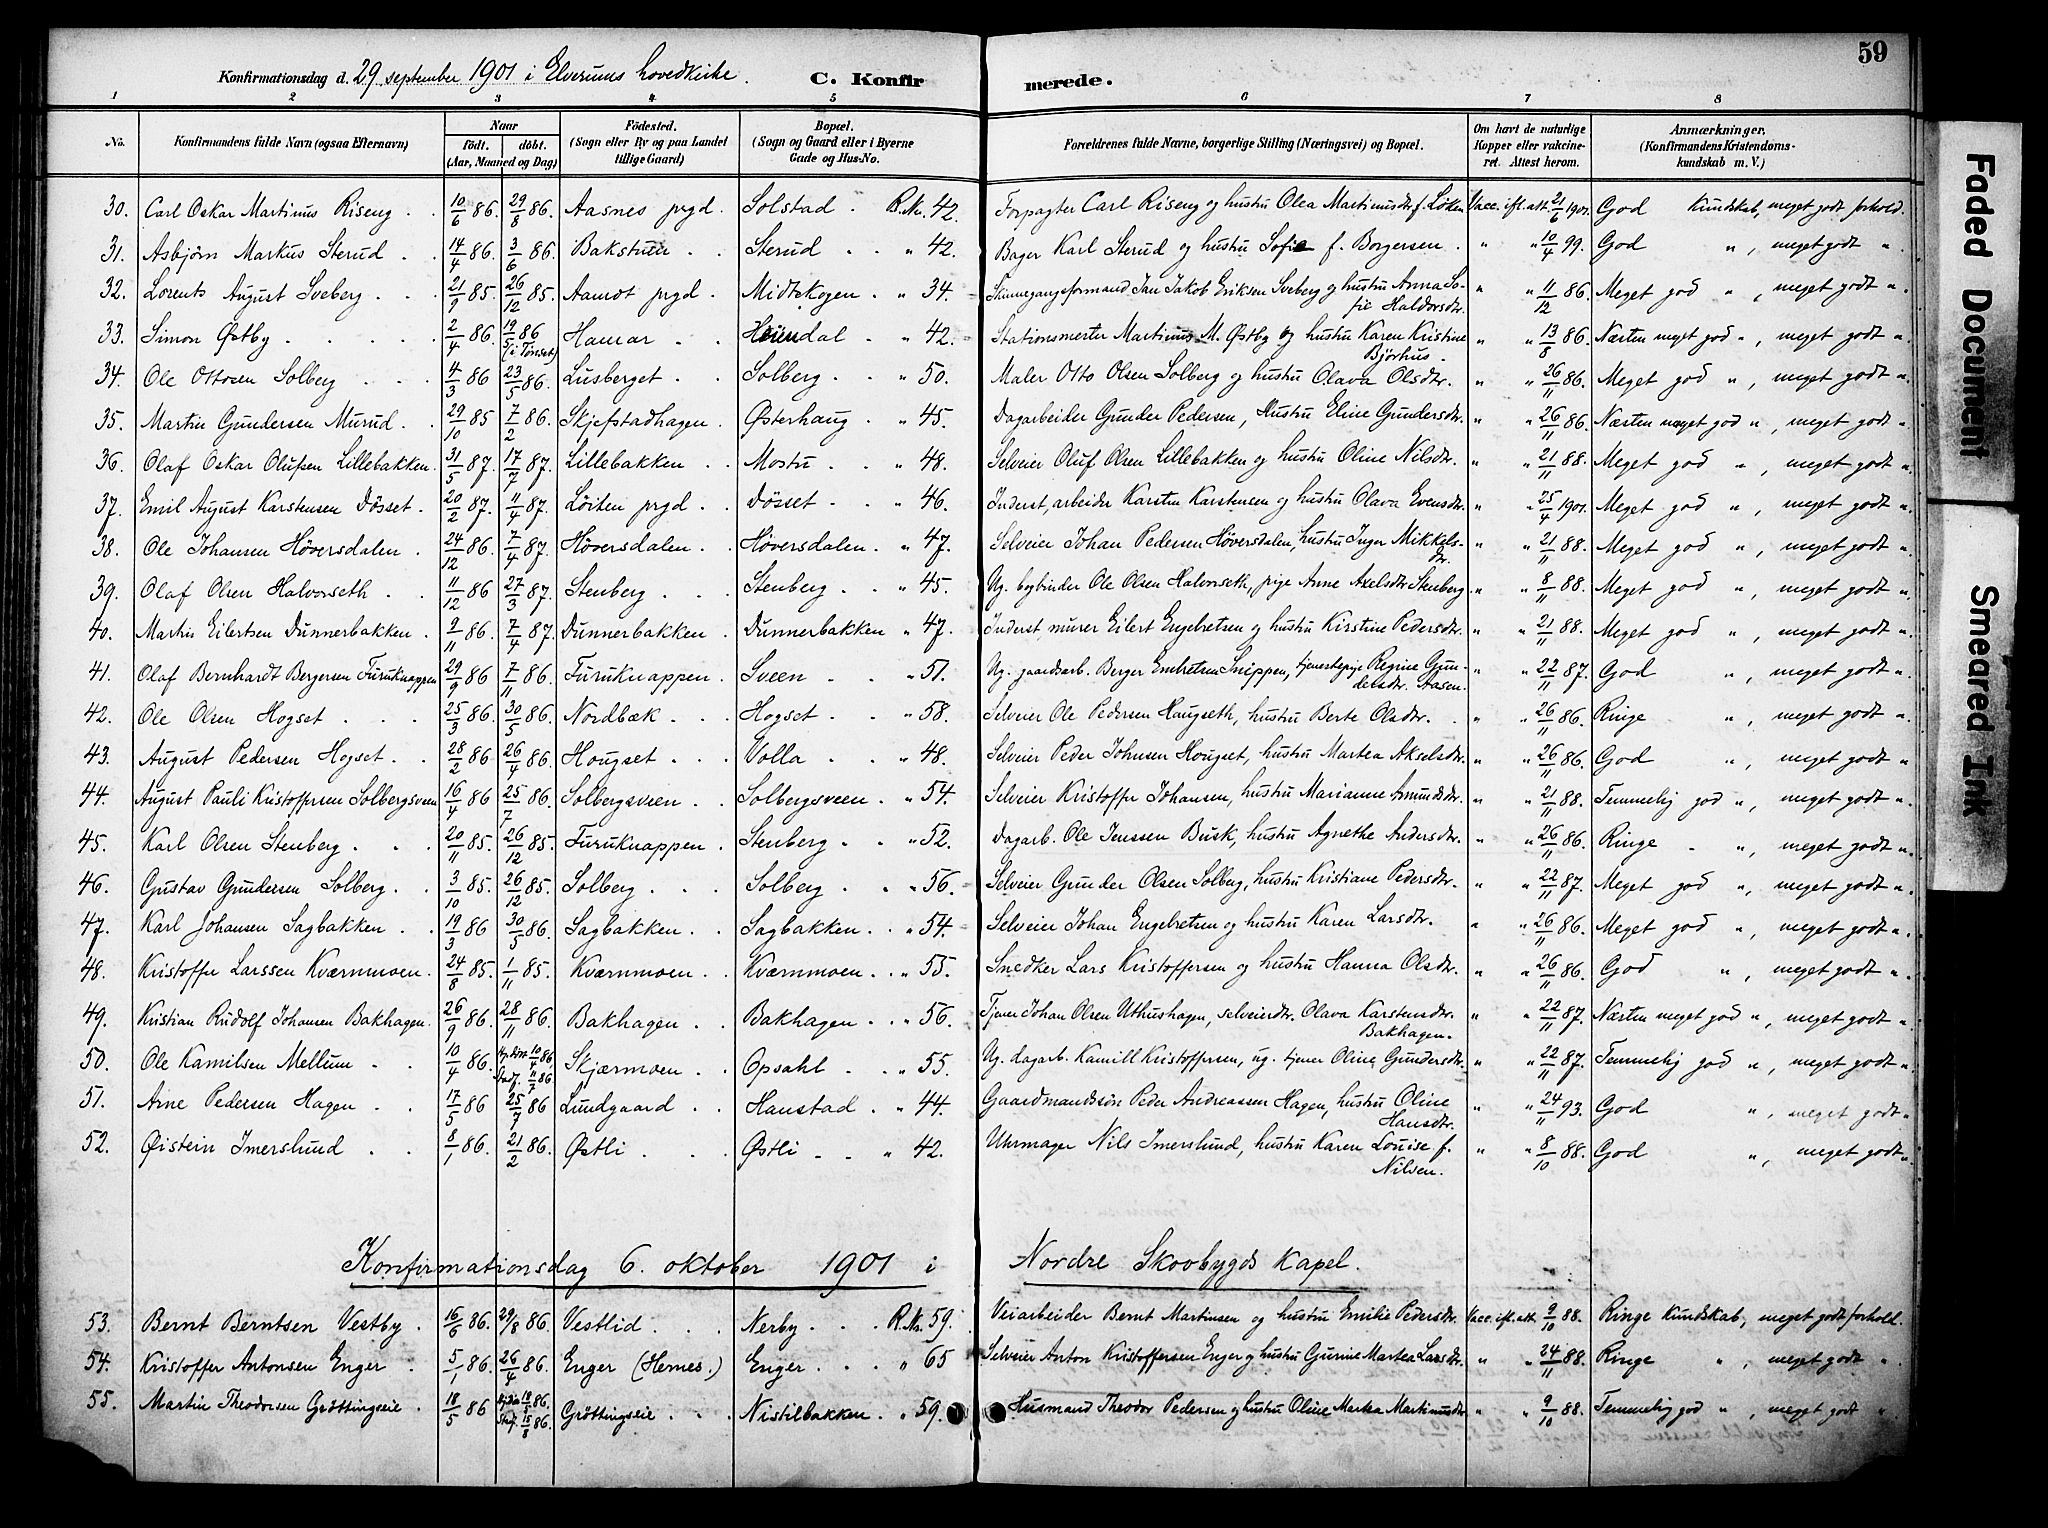 59
Konfirmationsdag d. 29 september 1901 i Elverums hovedkirke. C. Konfirmerede.
1 2 3 4 5 6 7 8
No. Konfirmandens fulde Navn (ogsaa Efternavn) Naar født. døbt. (Aar, Maaned og Dag) Fødested. (Sogn eller By og paa Landet tillige Gaard) Bopæl. (Sogn og Gaard eller i Byerne Gade og Hus-No. Forældrenes fulde Navne, borgerlige Stilling (Næringsvei) og Bopæl. Om havt de naturlige Kopper eller vakcineret. Attest herom. Anmærkninger. (Konfirmandens Kristendomskundskab m. V.)
30. Carl Oskar Martinus Riseng. 10/6 86. 29/8 86. Aasnes prgd. Solstad. R.No. 42. Forpagter Carl Riseng og hustru Olea Martinusdtr. f. Løken Vacc. ifl. att. 21/6 1901. God kundskab, meget godt forhold.
31. Asbjørn Markus Sterud. 14/4 86. 3/6 86. Bakstuen Sterud " 42. Bager Karl Sterud og hustru Sofie f. Borgersen. " " 10/4 99. God ", meget godt ".
32. Lorents August Sveberg. 21/9 85. 26/12 85. Aamot prgd. Midtskogen " 34. Skinnegangsformand Jan Jakob Eriksen Sveberg og hustru Anna Sofie Haldorsdtr. " " 11/12 86. Meget god ", meget godt ".
33. Simon Østby. 2/4 86. 19/5 86 (i Tønset) Hamar. Horndal " 42. Stationsmester Martinus M. Østby og hustru Karen Kristine Bjørhus. " " 13/8 86. Næsten meget god ", meget godt ".
34. Ole Ottosen Solberg 4/3 86 23/5 86. Lusberget. Solberg. " 50. Maler Otto Olsen Solberg og hustru Olava Olsdtr. " " 26/11 86. Meget god ", meget godt ".
35. Martin Gundersen Murud. 29/10 85 7/2 86. Skjefstadhagen. Østerhaug " 45. Dagarbeider Gunder Pedersen, Hustru Eline Gundersdtr. " " 26/11 86. Næsten meget god ", meget godt ".
36. Olaf Oskar Olufsen Lillebakken. 31/5 87. 17/7 87. Lillebakken. Mostu. " 48. Selveier Oluf Olsen Lillebakken og hustru Oline Nilsdtr. " " 21/11 88. Meget god ", meget godt ".
37. Emil August Karstensen Døsset. 20/2 87. 11/4 87. Løiten prgd. Døsset. " 46. Inderst, arbeider Karsten Karstensen og hustru Olava Evensdtr. " " 25/4 1901. Meget god ", meget godt ".
38. Ole Johansen Høversdalen. 24/12 86. 7/4 87. Høversdalen. Høversdalen. " 47. Selveier Johan Pedersen Høversdalen, hustru Inger Mikkelsdtr. " " 21/11 88. Meget god ", meget godt ".
39. Olaf Olsen Halvorseth. 11/12 86 27/3 87. Stenberg. Stenberg. " 45. Ug. bogbinder Ole Olsen Halvorseth, pige Anne Axelsdtr. Stenberg. " " 8/11 88. Meget god ", meget godt ".
40. Martin Eilertsen Dunnerbakken. 9/11 86. 7/4 87. Dunnerbakken. Dunnerbakken " 47. Inderst, murer Eilert Engebretsen og hustru Kirstine Pedersdtr. " " 21/11 88. Meget god ", meget godt ".
41. Olaf Bernhardt Bergersen Furuknappen 29/9 86 7/11 86. Furuknappen. Sveen " 51. Ug. gaardsarb. Berger Embretsen Snippen, tjenestepige Regine Gundersdtr. Aasen. " " 22/11 87. God ", meget godt ".
42. Ole Olsen Hogset. 25/3 86. 30/5 86. Nordbæk. Hogset. " 58. Selveier Ole Pedersen Haugseth, hustru Berte Olsdtr. " " 26/11 86. Ringe ", meget godt ".
43. August Pedersen Hogset. 28/2 86 26/4 86. Hougset. Volla " 48. Selveier Peder Johnsen Hougset, hustru Martea Akselsdtr. " " 26/11 86. God ", meget godt ".
44. August Pauli Kristoffersen Solbergsveen 16/4 86 25/7 86. Solbergsveen Solbergsveen. " 54. Selveier Kristoffer Johansen, hustru Marianne Asmundsdtr. " " 21/11 88. Temmelig god ", meget godt ".
45. Karl Olsen Stenberg. 20/11 85. 26/12 85. Furuknappen. Stenberg. " 52. Dagarb. Ole Jenssen Busk, hustru Agnethe Andersdtr. " " 26/11 86. Ringe ", meget godt ".
46. Gustav Gundersen Solberg. 3/10 85. 26/12 85. Solberg. Solberg. " 56. Selveier Gunder Olsen Solberg, hustru Kristiane Pedersdtr. " " 22/11 87. Meget god ", meget godt ".
47. Karl Johansen Sagbakken. 19/3 86 30/5 86. Sagbakken. Sagbakken. " 54. Selveier Johan Engebretsen og hustru Karen Larsdtr. " " 26/11 86. Meget god ", meget godt ".
48. Kristoffer Larssen Kværnmoen. 24/8 85. 1/11 85. Kværnmoen. Kværnmoen. " 55. Snedker Lars Kristoffersen og hustru Hanna Olsdtr. " " 26/11 86. God ", meget godt ".
49. Kristian Rudolf Johansen Bakhagen. 26/9 86. 28/11 86. Bakhagen. Bakhagen. " 56. Tjener Johan Olsen Uthushagen, selveierdtr. Olava Karstensdtr. Bakhagen. " " 22/11 87. Næsten meget god ", meget godt ".
50. Ole Kamilsen Mellum. 10/4 86. 10/4 86, Stadf. 11/7 86 Skjærmoen. Opsahl. " 55. Ug. dagarb. Kamill Kristoffersen, ug. tjener Oline Gundersdtr. " " 22/11 87. Temmelig god ", meget godt ".
51. Arne Pedersen Hagen. 17/5 86 25/9 86 Lundgaard. Hanstad. " 44. Gaardmandssøn Peder Andreassen Hagen, hustru Oline Hansdtr. " " 24/11 93. God ", meget godt ".
52. Øistein Imerslund 8/1 86. 21/2 86. Østli. Østli " 42. Uhrmager Nils Imerslund, hustru Karen Louise f. Nilsen. " " 8/10 88. God ", meget godt ".
Konfirmationsdag 6. oktober 1901 i Nordre Skovbygds Kapel.
53. Bernt Berntsen Vestby. 16/6 86. 29/8 86. Vestlid. Nerby. R.No. 59. Veiarbeider Bernt Martinsen og hustru Emilie Pedersdtr. Vacc. ifl. att. 9/10 88. Ringe kundskab, meget godt forhold.
54. Kristoffer Antonsen Enger. 5/1 86. 26/4 86. Enger (Hernes.) Enger. " 65 Selveier Anton Kristoffersen Enger og hustru Gunine Martea Larsdtr. " " 24/11 88. Ringe ", meget godt ".
55. Martin Theodorsen Grøttingseie. 18/5 86 18/5 86. Stadf. 15/8 86. Grøttingseie Nistilbakken. " 59. Husmand Theodor Pedersen og hustru Oline Martea Martinusdtr. " " 9/10 88. Temmelig god ", meget godt "
Faded Document
Smeared Ink